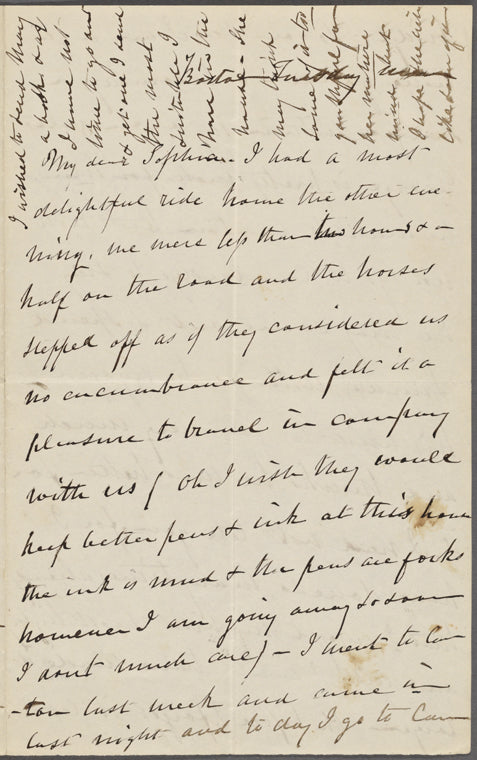 Boston Tuesday
My dear Sophia - I had a most
delightful ride home the other eve-
ning. we were less than two hours & a
half on the road and the horses
stepped off as if they considered us
no encumbrance and felt it a
pleasure to travel in company
with us (Oh I wish they would
keep better pens & ink at this house
the ink is mud & the pens are forks
however I am going away so soon
I dont much care) - I went to Can-
-ton last week and came in
last night and to day I go to Cam
I wished to send Mary
a book and
I have not
time to go and
& get one I send
the most
suitable I
have in the
house - she
may think
some of it too
young for
her mature
mind but
I hope she will